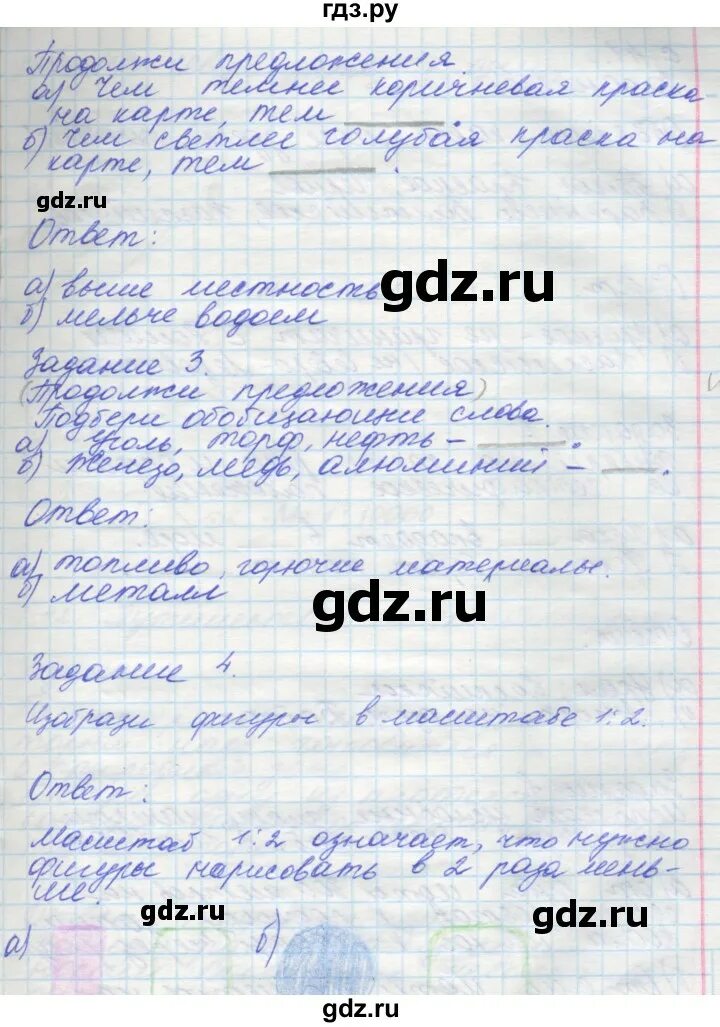 гдз.ру
Продолжи предложения
а) Чем темнее коричневая краска
на карте, тем ______.
б) Чем светлее голубая краска на
карте, тем ______.
gdz.ru
gdz.ru
Ответ:
а) выше местность
gdz.ru
б) мельче водоем
Задание 3.
(Продолжи предложения)
Подбери обобщающии слова.
а) Уголь, торф, нефть – ______.
б) Железо, медь, алюминий – ____.
Ответ:
а) топливо, горючие материалы.
б) металл
gdz.ru
Задание 4.
Изобрази фигуры в масштабе 1:2.
Ответ:
Масштаб 1:2 означает, что нужно
фигуры нарисовать в 2 раза мень-
ше.
gdz.ru
gdz.ru
а) б)
gdz.ru